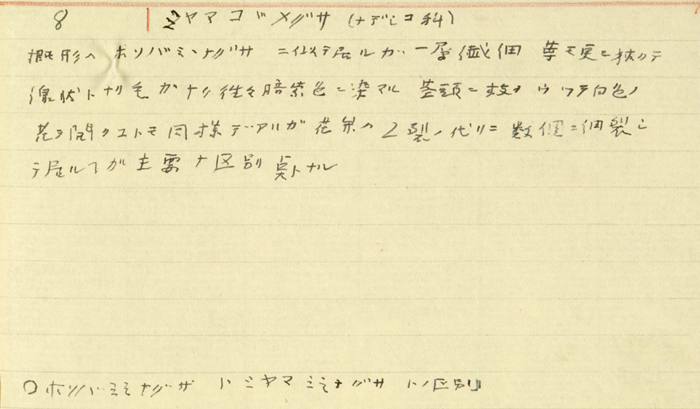 8 ミヤマコゴメグサ (ナデシコ科)
概形ハ ホソバミミナグサ ニ似テ居ルガ 一層繊細 葉モ更ニ狭クテ
線状トナリ毛ガナク往々暗紫色ニ染マル 茎頭ニ数 白色ノ
花ヲ開クコトモ同様デアルガ花弁ハ 2裂ノ代リニ 数個ニ細裂シ
テ居ルコトガ主要ナ区別点トナル
○ホソバミミナグサ トミヤマミミナグサ トノ区別